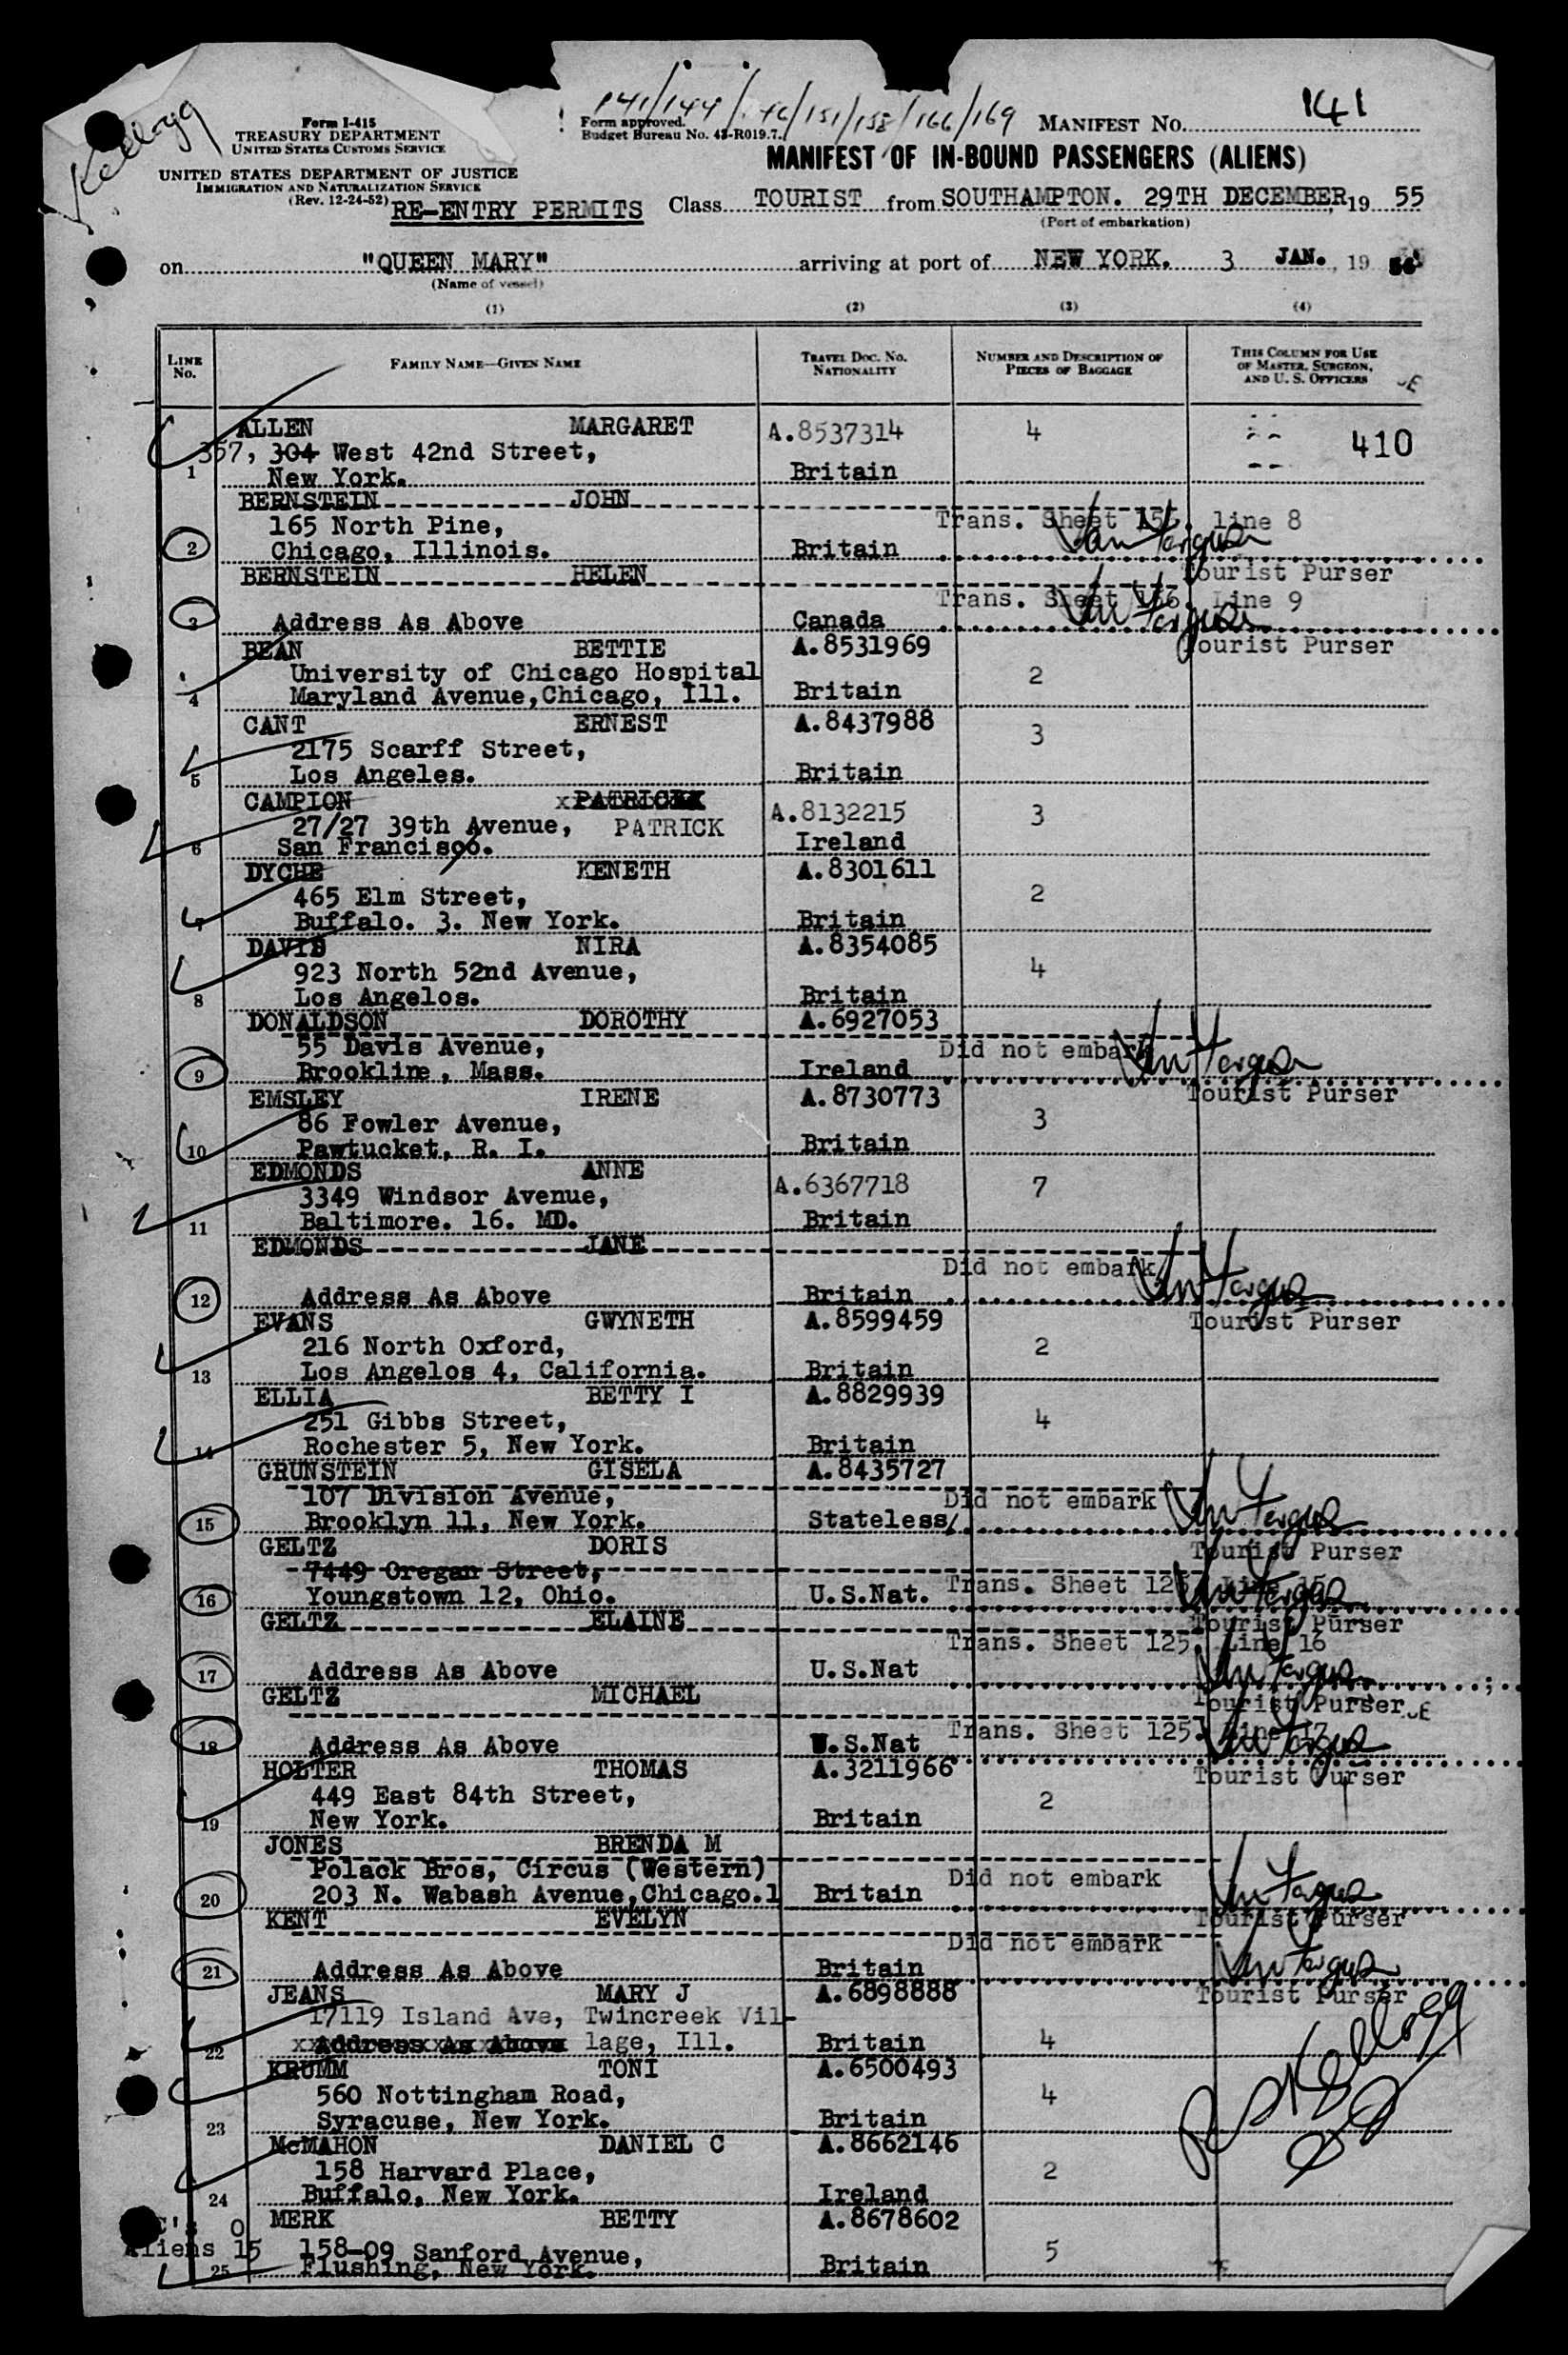 Kellogg
141/144/146/151/158/166/169
Form I-415
TREASURY DEPARTMENT
UNITED STATES CUSTOMS SERVICE
Form approved.
Budget Bureau No. 43-R019.7.
MANIFEST No. 141
MANIFEST OF IN-BOUND PASSENGERS (ALIENS)
UNITED STATES DEPARTMENT OF JUSTICE
IMMIGRATION AND NATURALIZATION SERVICE
(Rev. 12-24-52)
RE-ENTRY PERMITS Class TOURIST from SOUTHAMPTON. 29TH DECEMBER, 19 55
(Port of embarkation)
on "QUEEN MARY" arriving at port of NEW YORK. 3 JAN., 19 56
(Name of vessel)
(1) (2) (3) (4)
LINE No. FAMILY NAME—GIVEN NAME TRAVEL DOC. NO. NATIONALITY NUMBER AND DESCRIPTION OF PIECES OF BAGGAGE THIS COLUMN FOR USE OF MASTER, SURGEON, AND U. S. OFFICERS
ALLEN MARGARET A.8537314 4 410
357, 304 West 42nd Street,
1 New York. Britain
BERNSTEIN JOHN
165 North Pine, Trans. Sheet 156. line 8
2 Chicago, Illinois. Britain
BERNSTEIN HELEN Tourist Purser
Trans. Sheet 156. Line 9
3 Address As Above Canada
BEAN BETTIE A.8531969 Tourist Purser
University of Chicago Hospital 2
4 Maryland Avenue,Chicago, Ill. Britain
CANT ERNEST A.8437988
2175 Scarff Street, 3
5 Los Angeles. Britain
CAMPION PATRICK A.8132215 3
27/27 39th Avenue, PATRICK
6 San Francisco. Ireland
DYCHE KENETH A.8301611
465 Elm Street, 2
7 Buffalo. 3. New York. Britain
DAVIS NIRA A.8354085
923 North 52nd Avenue, 4
8 Los Angelos. Britain
DONALDSON DOROTHY A.6927053
55 Davis Avenue, Did not embark
9 Brookline, Mass. Ireland
EMSLEY IRENE A.8730773 Tourist Purser
86 Fowler Avenue, 3
10 Pawtucket, R. I. Britain
EDMONDS ANNE A.6367718 7
3349 Windsor Avenue,
11 Baltimore. 16. MD. Britain
EDMONDS JANE
Did not embark
12 Address As Above Britain
EVANS GWYNETH A.8599459 Tourist Purser
216 North Oxford, 2
13 Los Angelos 4, California. Britain
ELLIA BETTY I A.8829939
251 Gibbs Street, 4
14 Rochester 5, New York. Britain
GRUNSTEIN GISELA A.8435727
107 Division Avenue, Did not embark
15 Brooklyn 11, New York. Stateless
GELTZ DORIS Tourist Purser
7449 Oregan Street,
16 Youngstown 12, Ohio. U.S.Nat. Trans. Sheet 125. Line 15
GELTZ ELAINE Tourist Purser
Trans. Sheet 125. Line 16
17 Address As Above U.S.Nat
GELTZ MICHAEL Tourist Purser
Trans. Sheet 125. Line 17
18 Address As Above U.S.Nat
HOLTER THOMAS A.3211966 Tourist Purser
449 East 84th Street, 2
19 New York. Britain
JONES BRENDA M
Polack Bros, Circus (Western) Did not embark
20 203 N. Wabash Avenue,Chicago.1 Britain
KENT EVELYN Tourist Purser
Did not embark
21 Address As Above Britain
JEANS MARY J A.6898888 Tourist Purser
17119 Island Ave, Twincreek Vil-
22 Address As Above lage, Ill. Britain 4
KRUMM TONI A.6500493
560 Nottingham Road, 4
23 Syracuse, New York. Britain
McMAHON DANIEL C A.8662146
158 Harvard Place, 2
24 Buffalo, New York. Ireland
C's 0 MERK BETTY A.8678602
Aliens 15 158-09 Sanford Avenue, 5
25 Flushing, New York. Britain
Kellogg